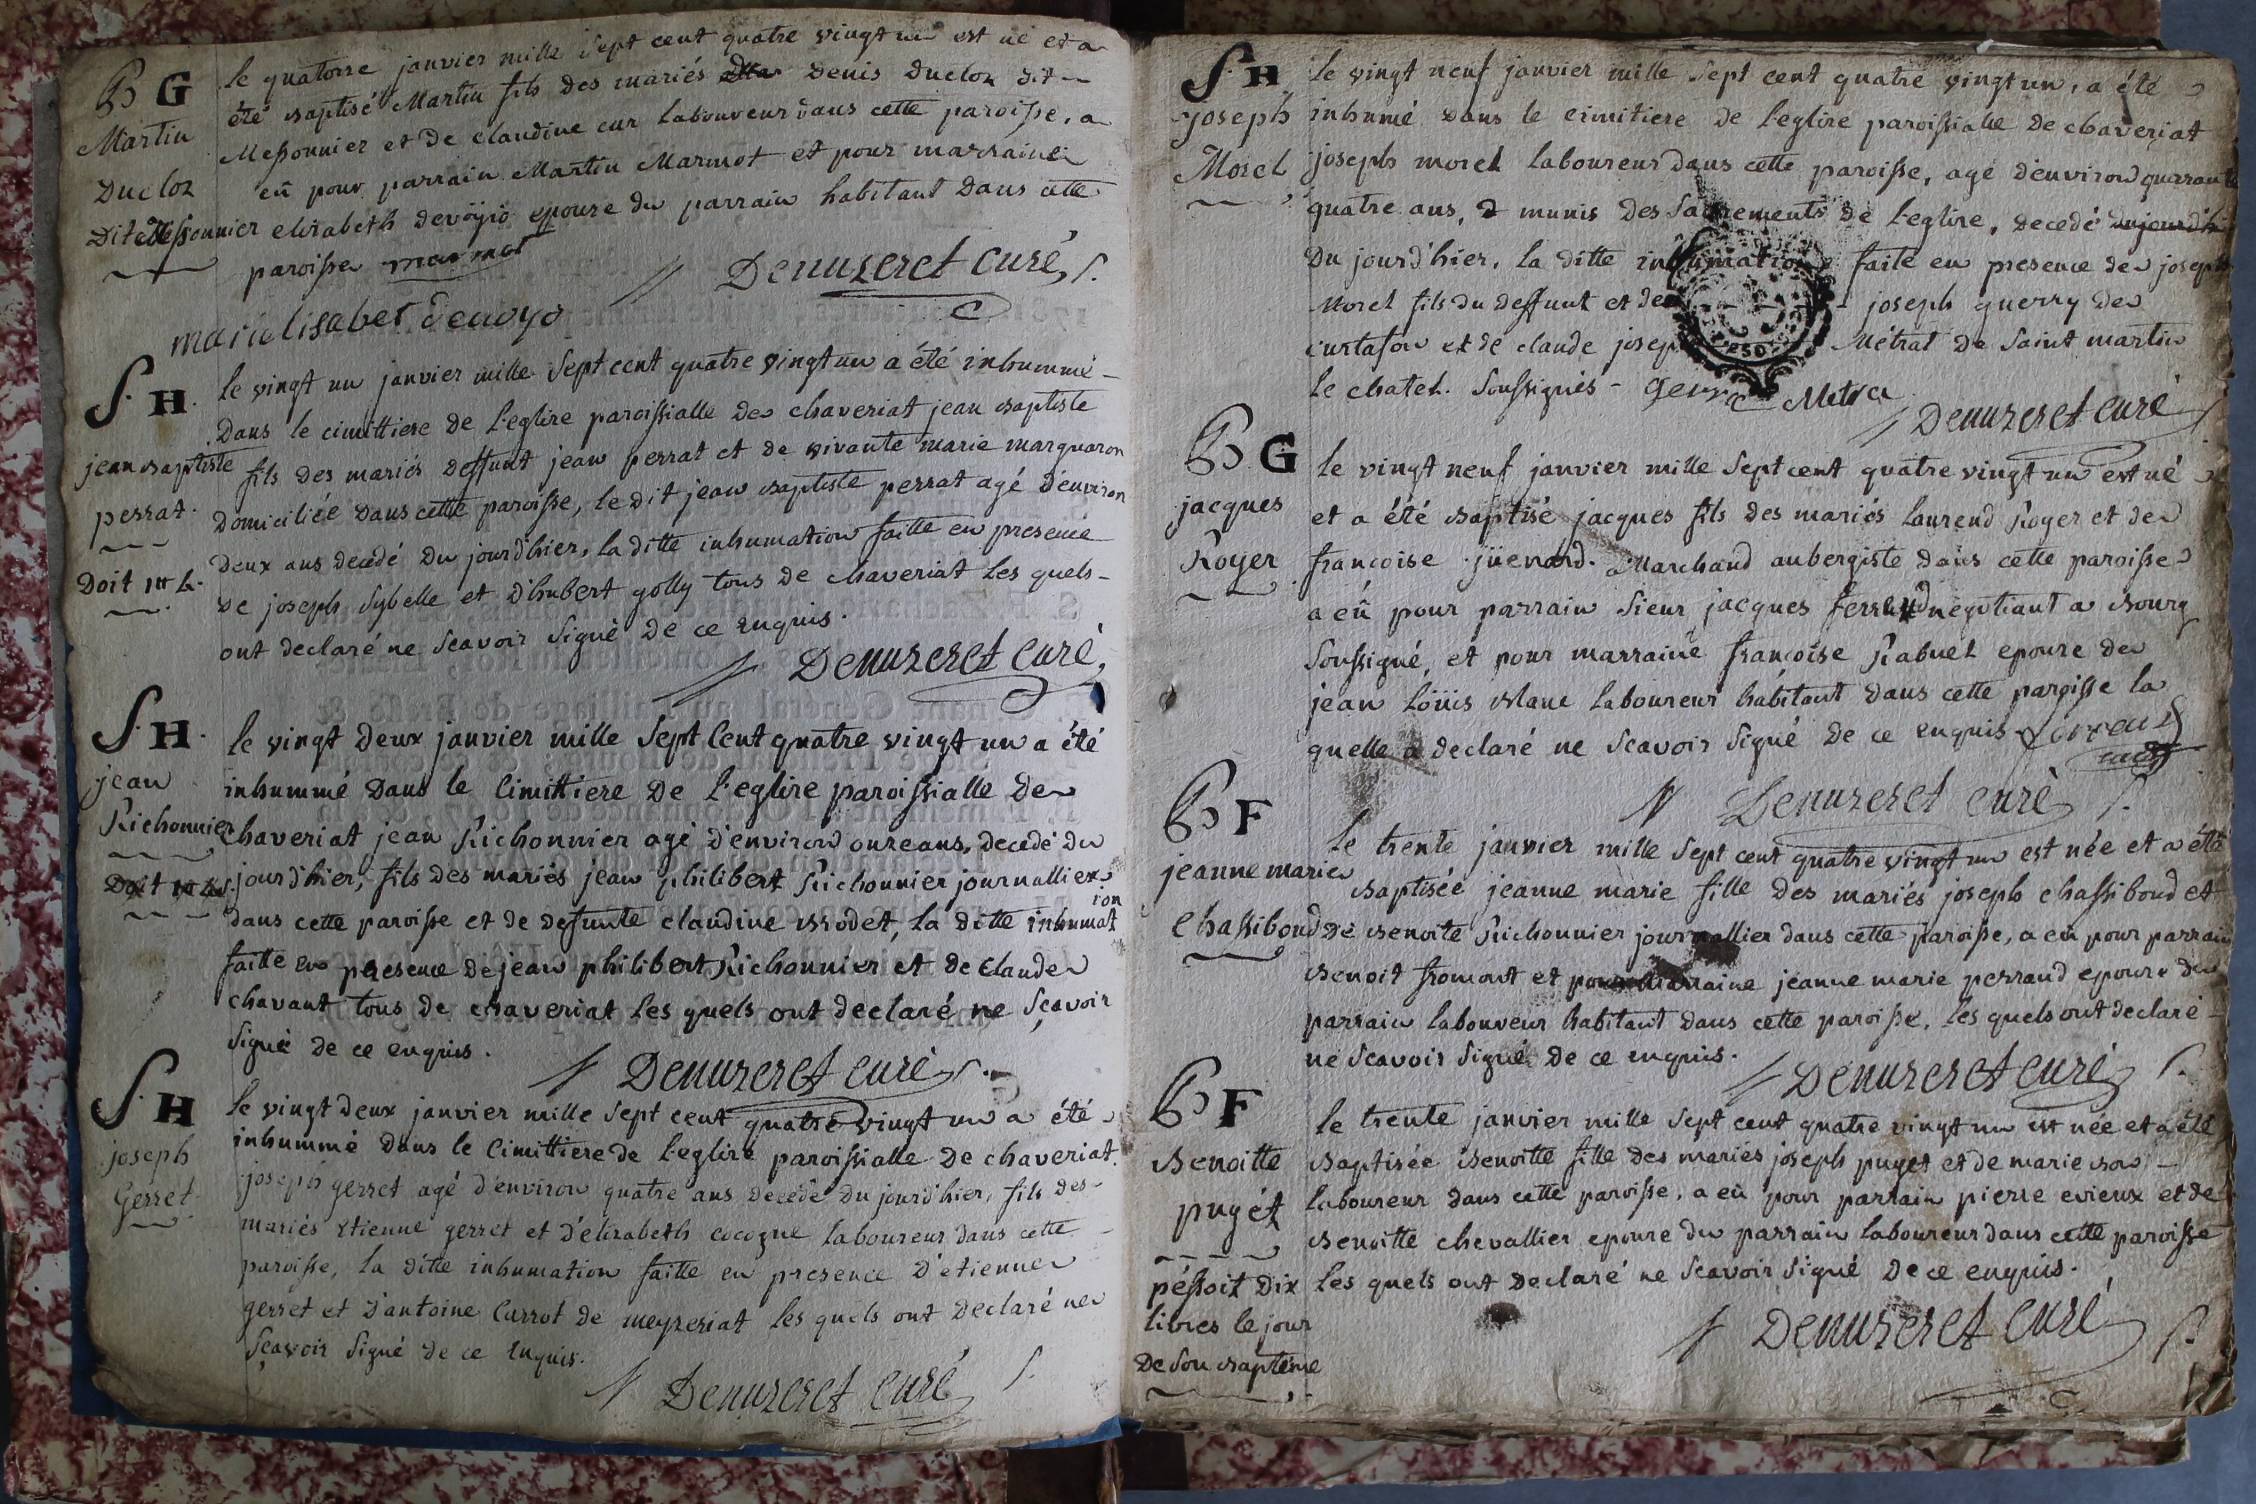 B G
Martin
Ducloz
Dit Messonnier
le quatorze janvier mille sept cent quatre vingt un est né et a
été baptisé Martin fils des mariés Denis Ducloz dit
Messonnier et de claudine cur laboureur dans cette paroisse, a
eü pour parrain Martin Marmot et pour marraine
elizabeth devoÿio epouse du parrain habitant dans cette
paroisse marmot
Denuzeret curé
marielisabet devoyo
S. H.
jean baptiste
perrat.
Doit 3 lt.
le vingt un janvier mille sept cent quatre vingt un a été inhummé
Dans le cimittiere de l'eglise paroissialle de chaveriat jean baptiste
fils des mariés deffunt jean perrat et de vivante marie marguaron
domiciliée dans cette paroisse, le dit jean baptiste perrat agé d'environ
deux ans decedé du jourd'hier, la ditte inhumation faitte en presence
de joseph sybelle et d'hubert golly tous de chaveriat les quels
ont declaré ne scavoir signé de ce enquis.
Denuzeret curé,
S. H.
jean
Richonnier
le vingt deux janvier mille sept cent quatre vingt un a été
inhummé Dans le cimittiere de l'eglise paroissialle de
chaveriat jean Richonnier agé d'environ onze ans, decedé du
jourd'hier, fils des mariés jean philibert Richonnier journallier
dans cette paroisse et de defunte claudine brodet, la ditte inhumation
faitte en presence de jean philibert Richonnier et de claude
chavant tous de chaveriat les quels ont declaré ne scavoir
signé de ce enquis.
Denuzeret curé
S. H
joseph
Gerret
le vingt deux janvier mille sept cent quatre vingt un a été
inhummé dans le cimittiere de l'eglise paroissialle de chaveriat
joseph gerret agé d'environ quatre ans decedé du jourd'hier, fils des
mariés etienne gerret et d'elizabeth cocogne laboureur dans cette
paroisse, la ditte inhumation faitte en presence d'etienne
gerret et d'antoine Currot de meyzeriat les quels ont declaré ne
scavoir signé de ce enquis.
Denuzeret curé
S. H
joseph
Morel
le vingt neuf janvier mille sept cent quatre vingt un, a été
inhumé dans le cimitiere de l'eglise paroissialle de chaveriat
joseph morel laboureur dans cette paroisse, agé d'environ quarante
quatre ans, & munis des sacrements de l'eglise, decedé dujourd'hi
Du jourd'hier, la ditte inhumation faite en presence de joseph
Morel fils du deffunt et de joseph guerry de
curtafon et de claude joseph Métrat de saint martin
le chatel. soussignés - Metra
Denuzeret curé
B G
jacques
Royer
le vingt neuf janvier mille sept cent quatre vingt un est né
et a été baptisé jacques fils des mariés laurend Royer et de
francoise jüenard. Marchand aubergiste dans cette paroisse
a eü pour parrain sieur jacques negotiant a bourg
soussigné, et pour marraine francoise Rabuel epouse de
jean loüis blanc laboureur habitant dans cette paroisse la
quelle a declaré ne scavoir signé de ce enquis
Denuzeret curé
B F
jeanne marie
chassiboud
le trente janvier mille sept cent quatre vingt un est née et a été
baptisée jeanne marie fille des mariés joseph chassiboud et
de benoite Richonnier journallier dans cette paroisse, a eu pour parrain
benoit fromont et pour marraine jeanne marie perraud epouse du
parrain laboureur habitant dans cette paroisse, les quels ont declaré
ne scavoir signé de ce enquis.
Denuzeret curé
B F
benoitte
pugét
péssoit dix
livres le jour
de son baptême
le trente janvier mille sept cent quatre vingt un est née et a été
baptisée benoitte fille des mariés joseph puget et de marie bon
laboureur dans cette paroisse, a eü pour parrain pierre evieux et de
benoitte chevallier epouse du parrain laboureur dans cette paroisse
les quels ont declaré ne scavoir signé de ce enquis.
Denuzeret curé